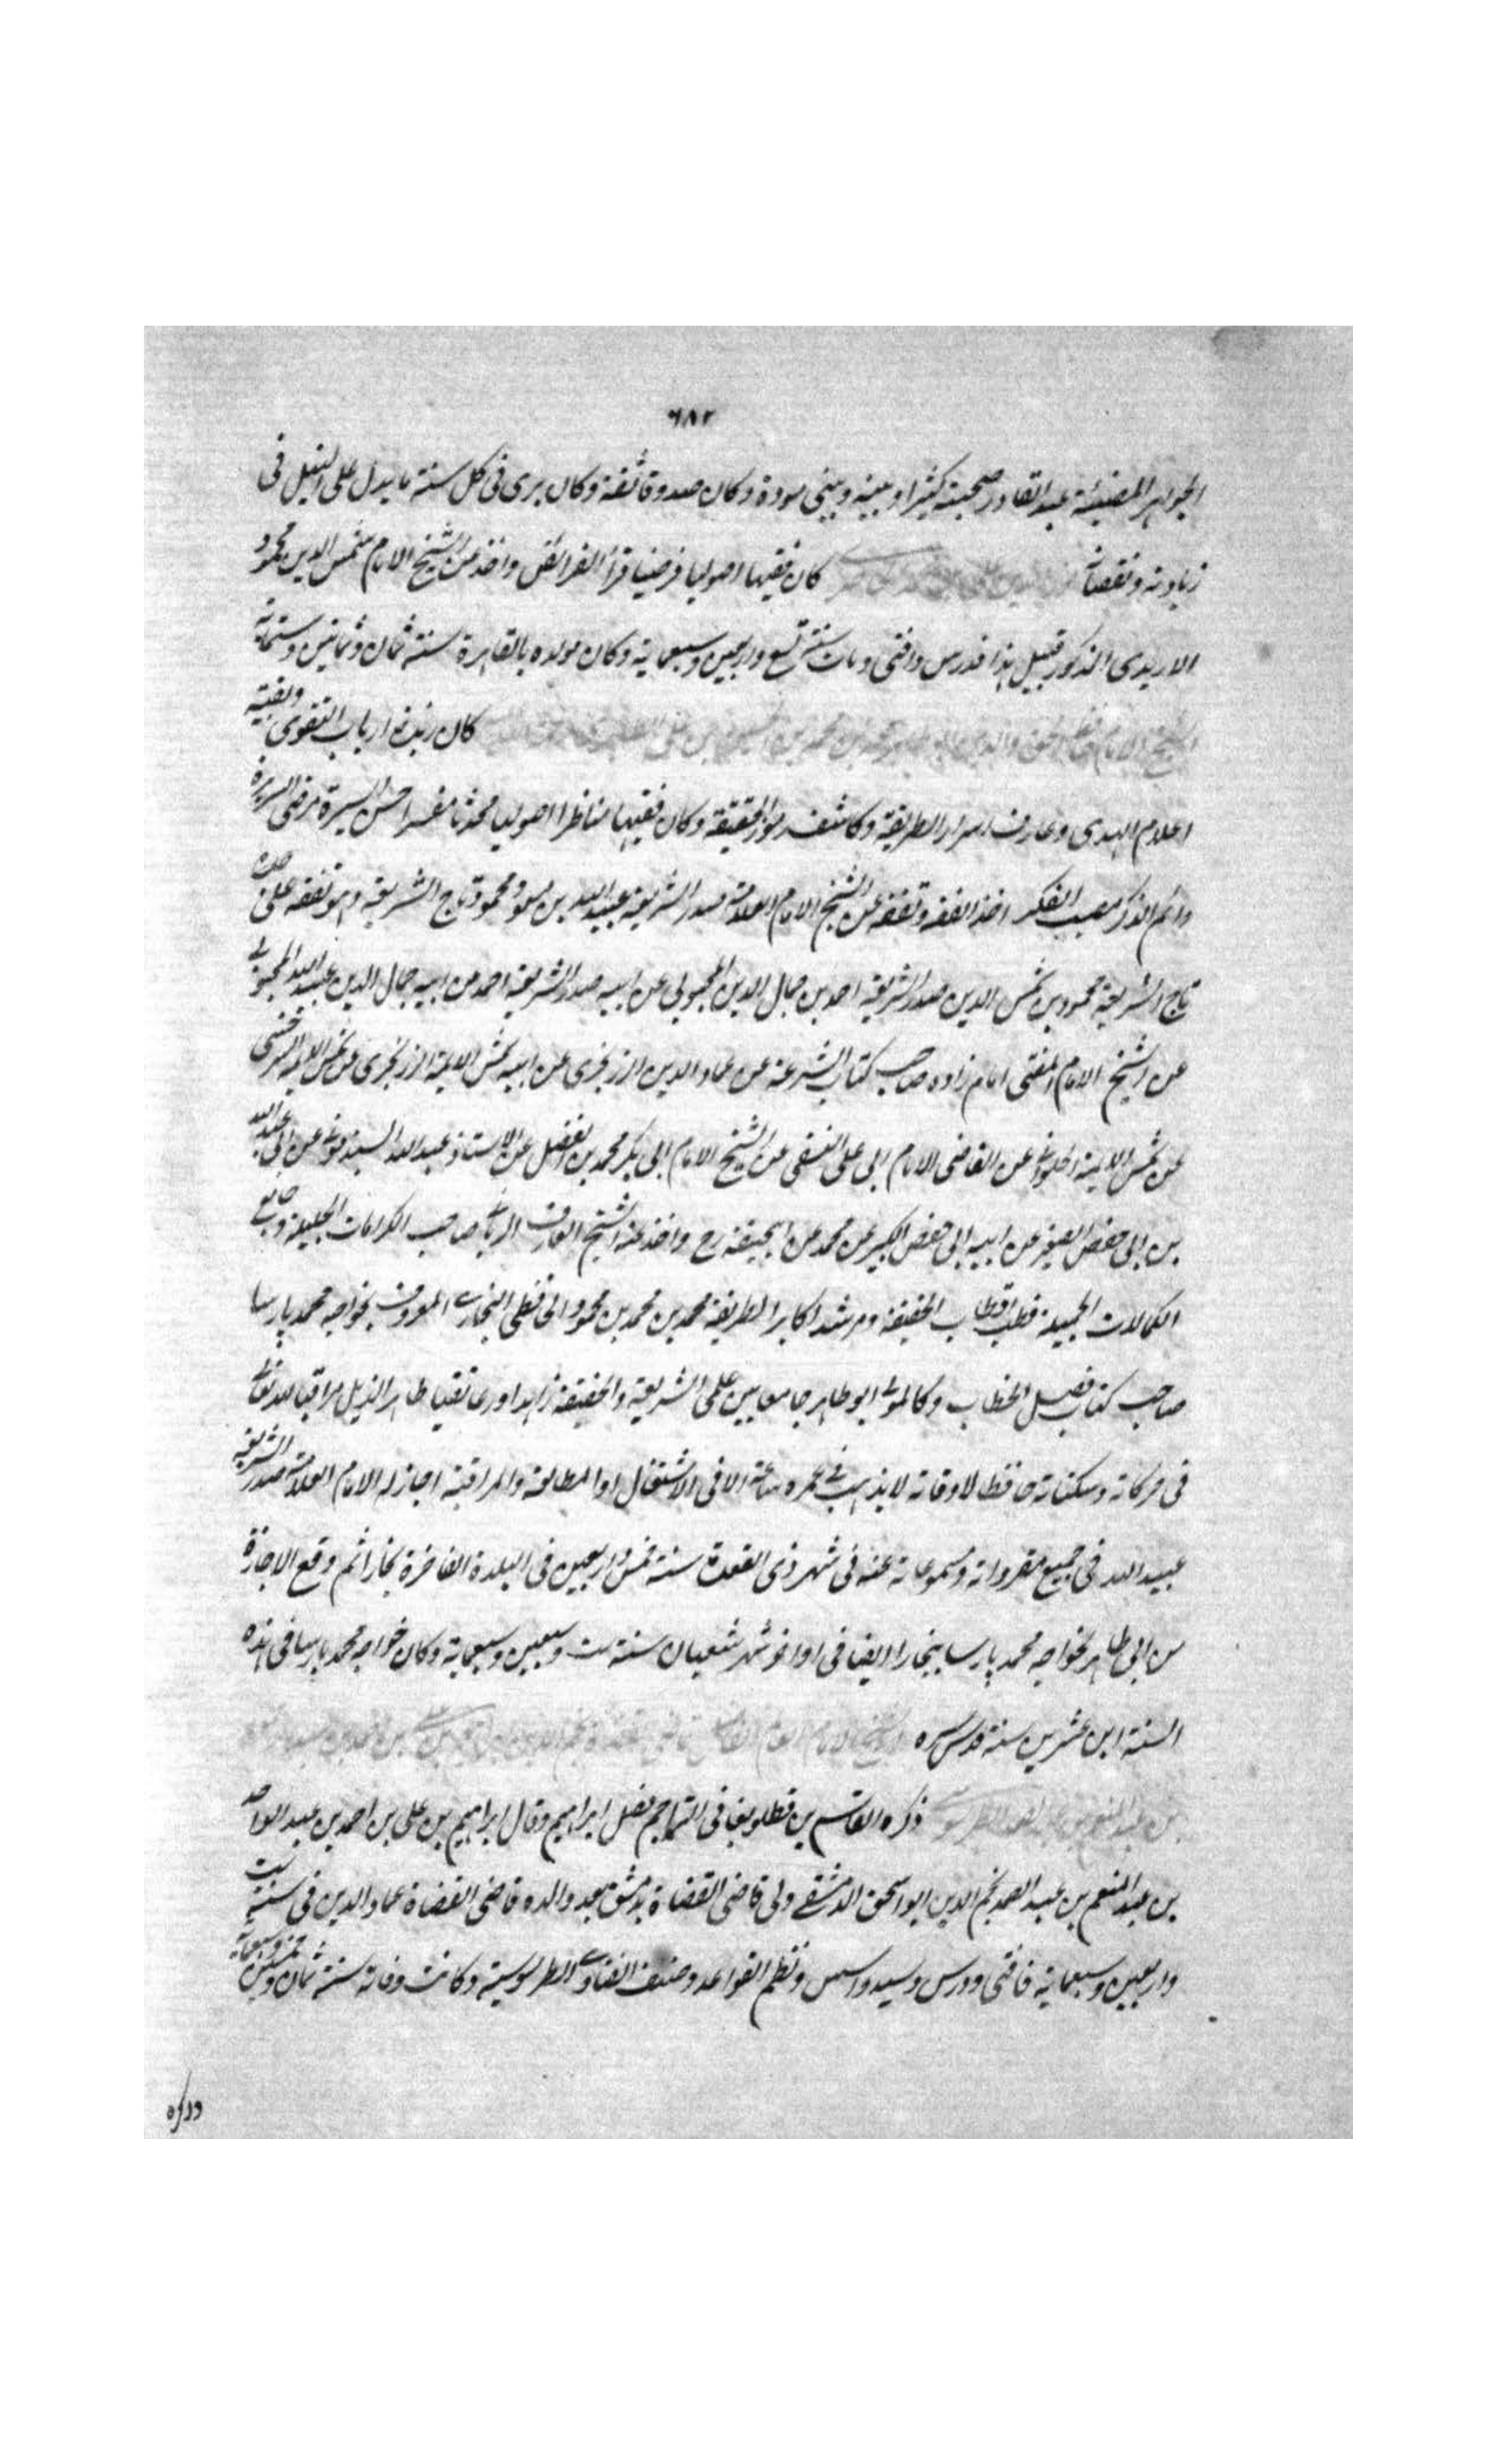 ٦٨٢
الجواهر المضيئة عبد القادر صحبته كثيرا وبينه وبيني مودة وكان صدوقا ثقة وكان يرى في كل سنة ما يدل على النيل في
زيادته ونقصانه كان فقيها اصوليا فرضيا قرأ الفرائض واخذ عن الشيخ الامام شمس الدين محمود
المذكور قبيل هذا فدرس وافتى ومات سنة تسع واربعين وسبعماية وكان مولده بالقاهرة سنة ثمان وثمانين وستماية
كان زبدة ارباب التقوى وبقية
اعلام الهدى وعارف اسرار الطريقة وكاشف رموز الحقيقة وكان فقيها مناظرا اصوليا محدثا مفسرا حسن السيرة مرضي السريرة
دائم الذكر مصيب الفكر اخذ الفقه وتفقه عن الشيخ الامام العلامة صدر الشريعة عبيد الله بن مسعود محمود تاج الشريعة وهو تفقه على جده
تاج الشريعة محمود بن شمس الدين صدر الشريعة احمد بن جمال الدين المحبوبي عن ابيه صدر الشريعة احمد من ابيه جمال الدين عبيد الله المحبوبي
عن الشيخ الامام المفتي امام زاده صاحب كتاب الشرعة عن عماد الدين الزرنجري عن ابيه شمس الايمة الزرنجري عن شمس الايمة السرخسي
عن شمس الايمة الحلواني عن القاضي الامام ابي علي النسفي عن الشيخ الامام ابي بكر محمد بن الفضل عن الاستاذ عبد الله السبذموني عن ابي عبد الله
بن ابي حفص الصغير عن ابيه ابي حفص الكبير عن محمد عن ابيحنيفة رح واخذ عنه الشيخ العارف الرباني صاحب الكرامات الجليلة وجامع
الكمالات الجميلة قطب اقطاب الحقيقة ومرشد اكابر الطريقة محمد بن محمد بن محمود الحافظي البخاري المعروف بخواجه محمد پارسا
صاحب كتاب فصل الخطاب وكان المولى ابو طاهر جامعا بين علمي الشريعة والحقيقة زاهدا ورعا تقيا طاهر الذيل مراقبا لله تعالى
في حركاته وسكناته حافظا لاوقاته لا يذهب في عمره ساعة الا في الاشتغال او المطالعة والمراقبة اجاز له الامام العلامة صدر الشريعة
عبيد الله في جميع مقرواته ومسموعاته عنه في شهر ذي القعدة سنة خمس واربعين في البلدة الفاخرة بخارا ثم وقع الاجازة
من ابي طاهر لخواجه محمد پارسا ببخارا ايضا في اواخر شهر شعبان سنة ست وسبعين وسبعماية وكان خواجه محمد پارسا في هذه
السنة ابن عشرين سنة قدس سره
ذكره القاسم بن قطلوبغا في التراجم فصل ابراهيم وقال ابراهيم بن علي بن احمد بن عبد الواحد
بن عبد المنعم بن عبد الصمد نجم الدين ابو اسحق الدمشقي ولي قاضي القضاة بدمشق بعد والده قاضي القضاة عماد الدين في سنة ست
واربعين وسبعماية فافتى ودرس وسيد واسس ونظم القواعد وصنف الفتاوى الطرسوسية وكانت وفاته سنة ثمان وخمسين وسبعماية